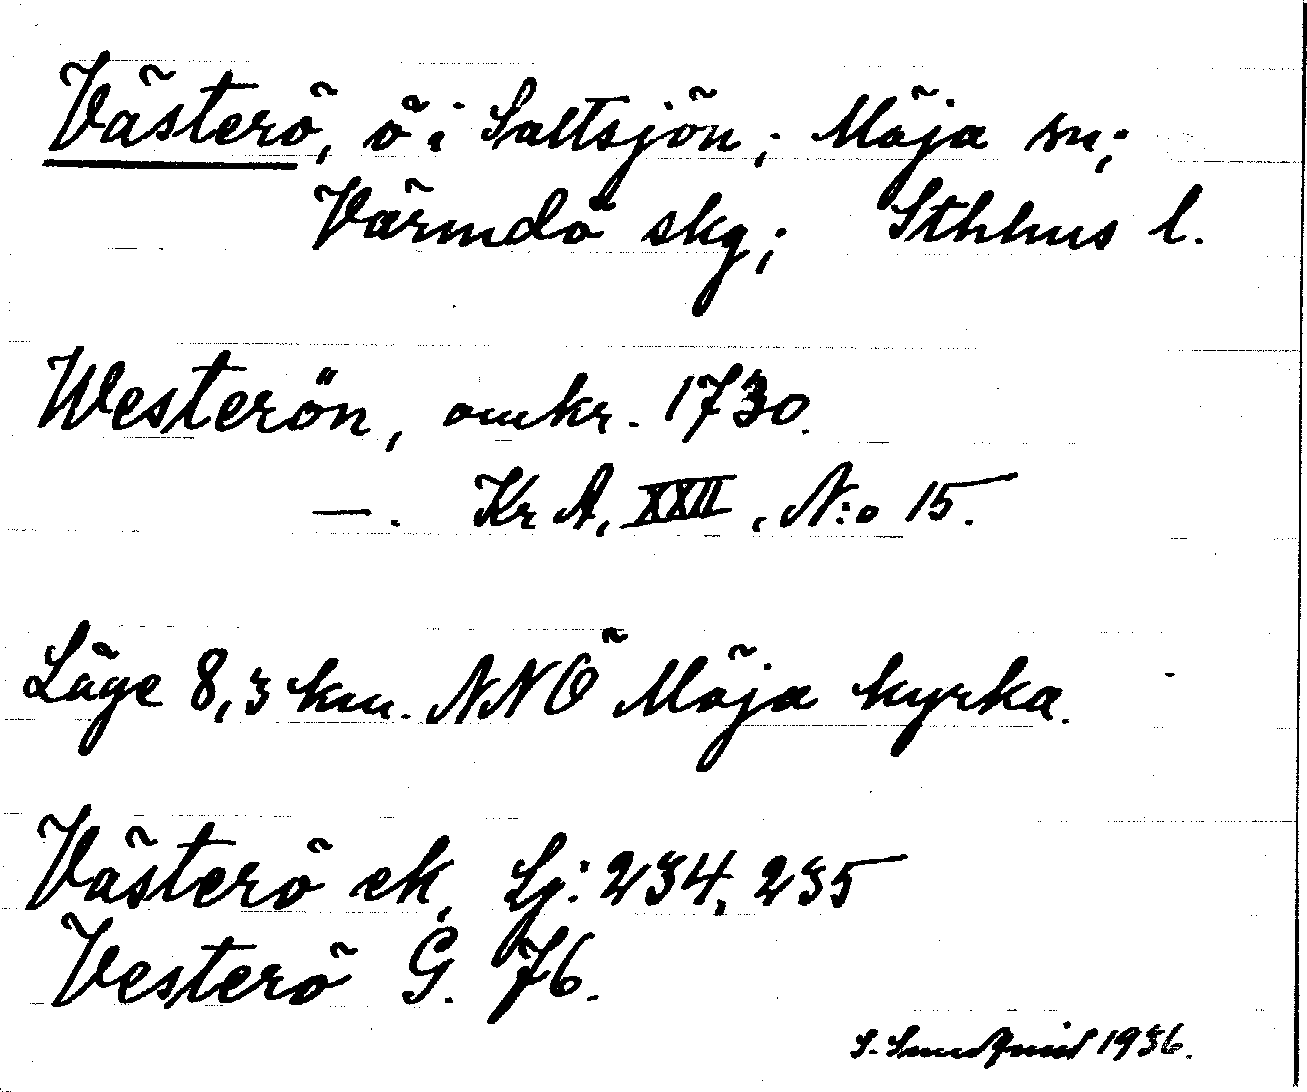 Västerö, ö i Saltsjön; Möja sn;
Värmdö skg; Sthlms l.
Westerön, omkr. 1730.
—. Kr A, XXII, N:o 15.
Läge 8,3 km. NNÖ Möja kyrka.
Västerö ek. Lj: 234, 235
Vesterö G. 76.
S. Sundquist 1936.